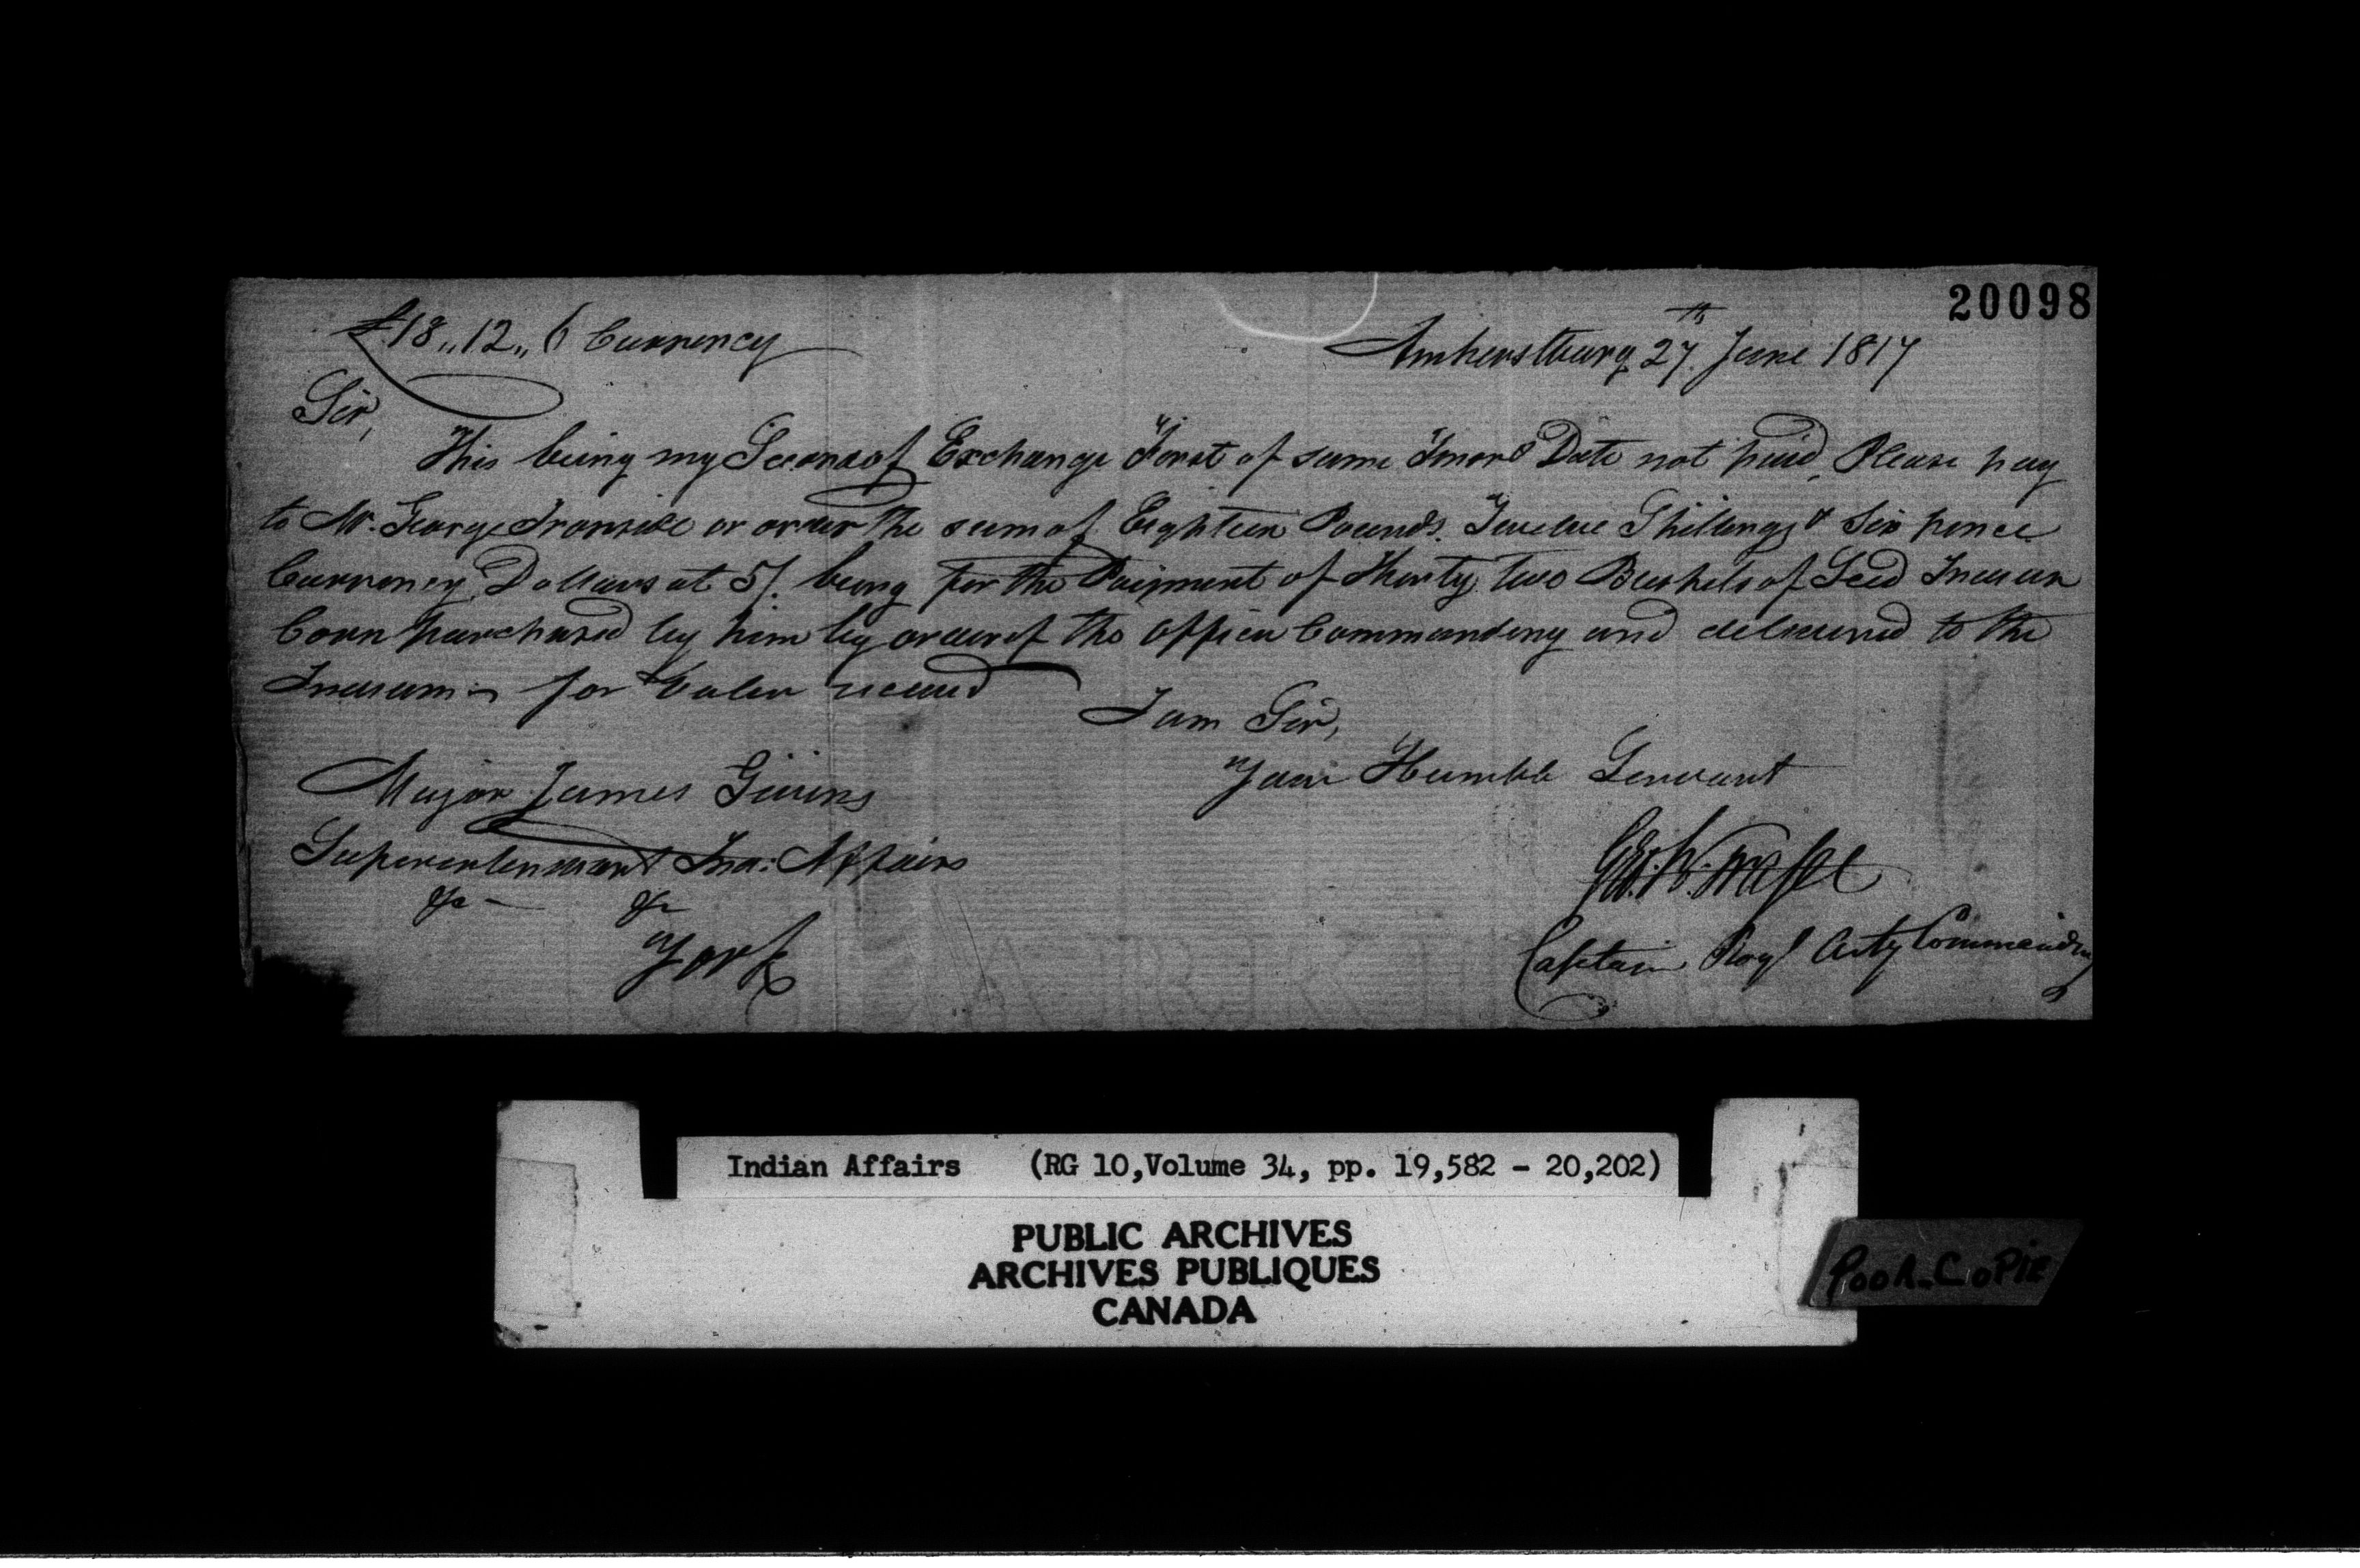 20098
£18,,12,,6 Currency
Amherstburg 27th June 1817
Sir,
This being my Second of Exchange First of same Tenor & Date not paid, Please pay
to Mr. George Ironside or order the sum of Eighteen Pounds. Twelve Shillings & Six pence
Currency, Dollars at 5/. being for the Paiment of Thirty two Bushels of Seed Indian
Corn purchased by him by order of the Officer Commanding and delivered to the
Indians for Value received
I am Sir,
Your Humble Servant
Major James Givins
Superintendant Ind: Affairs
&c &c
York
Geo. W.
Captain Royl Arty Commanding
Indian Affairs (RG 10, Volume 34, pp. 19,582 - 20,202)
PUBLIC ARCHIVES
ARCHIVES PUBLIQUES
CANADA
POOR-COPIE